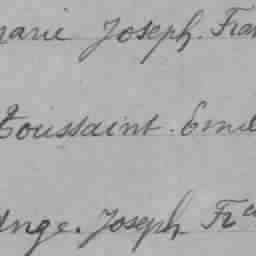 marie Joseph. Fran
Toussaint. Emil
Ange. Joseph Fra